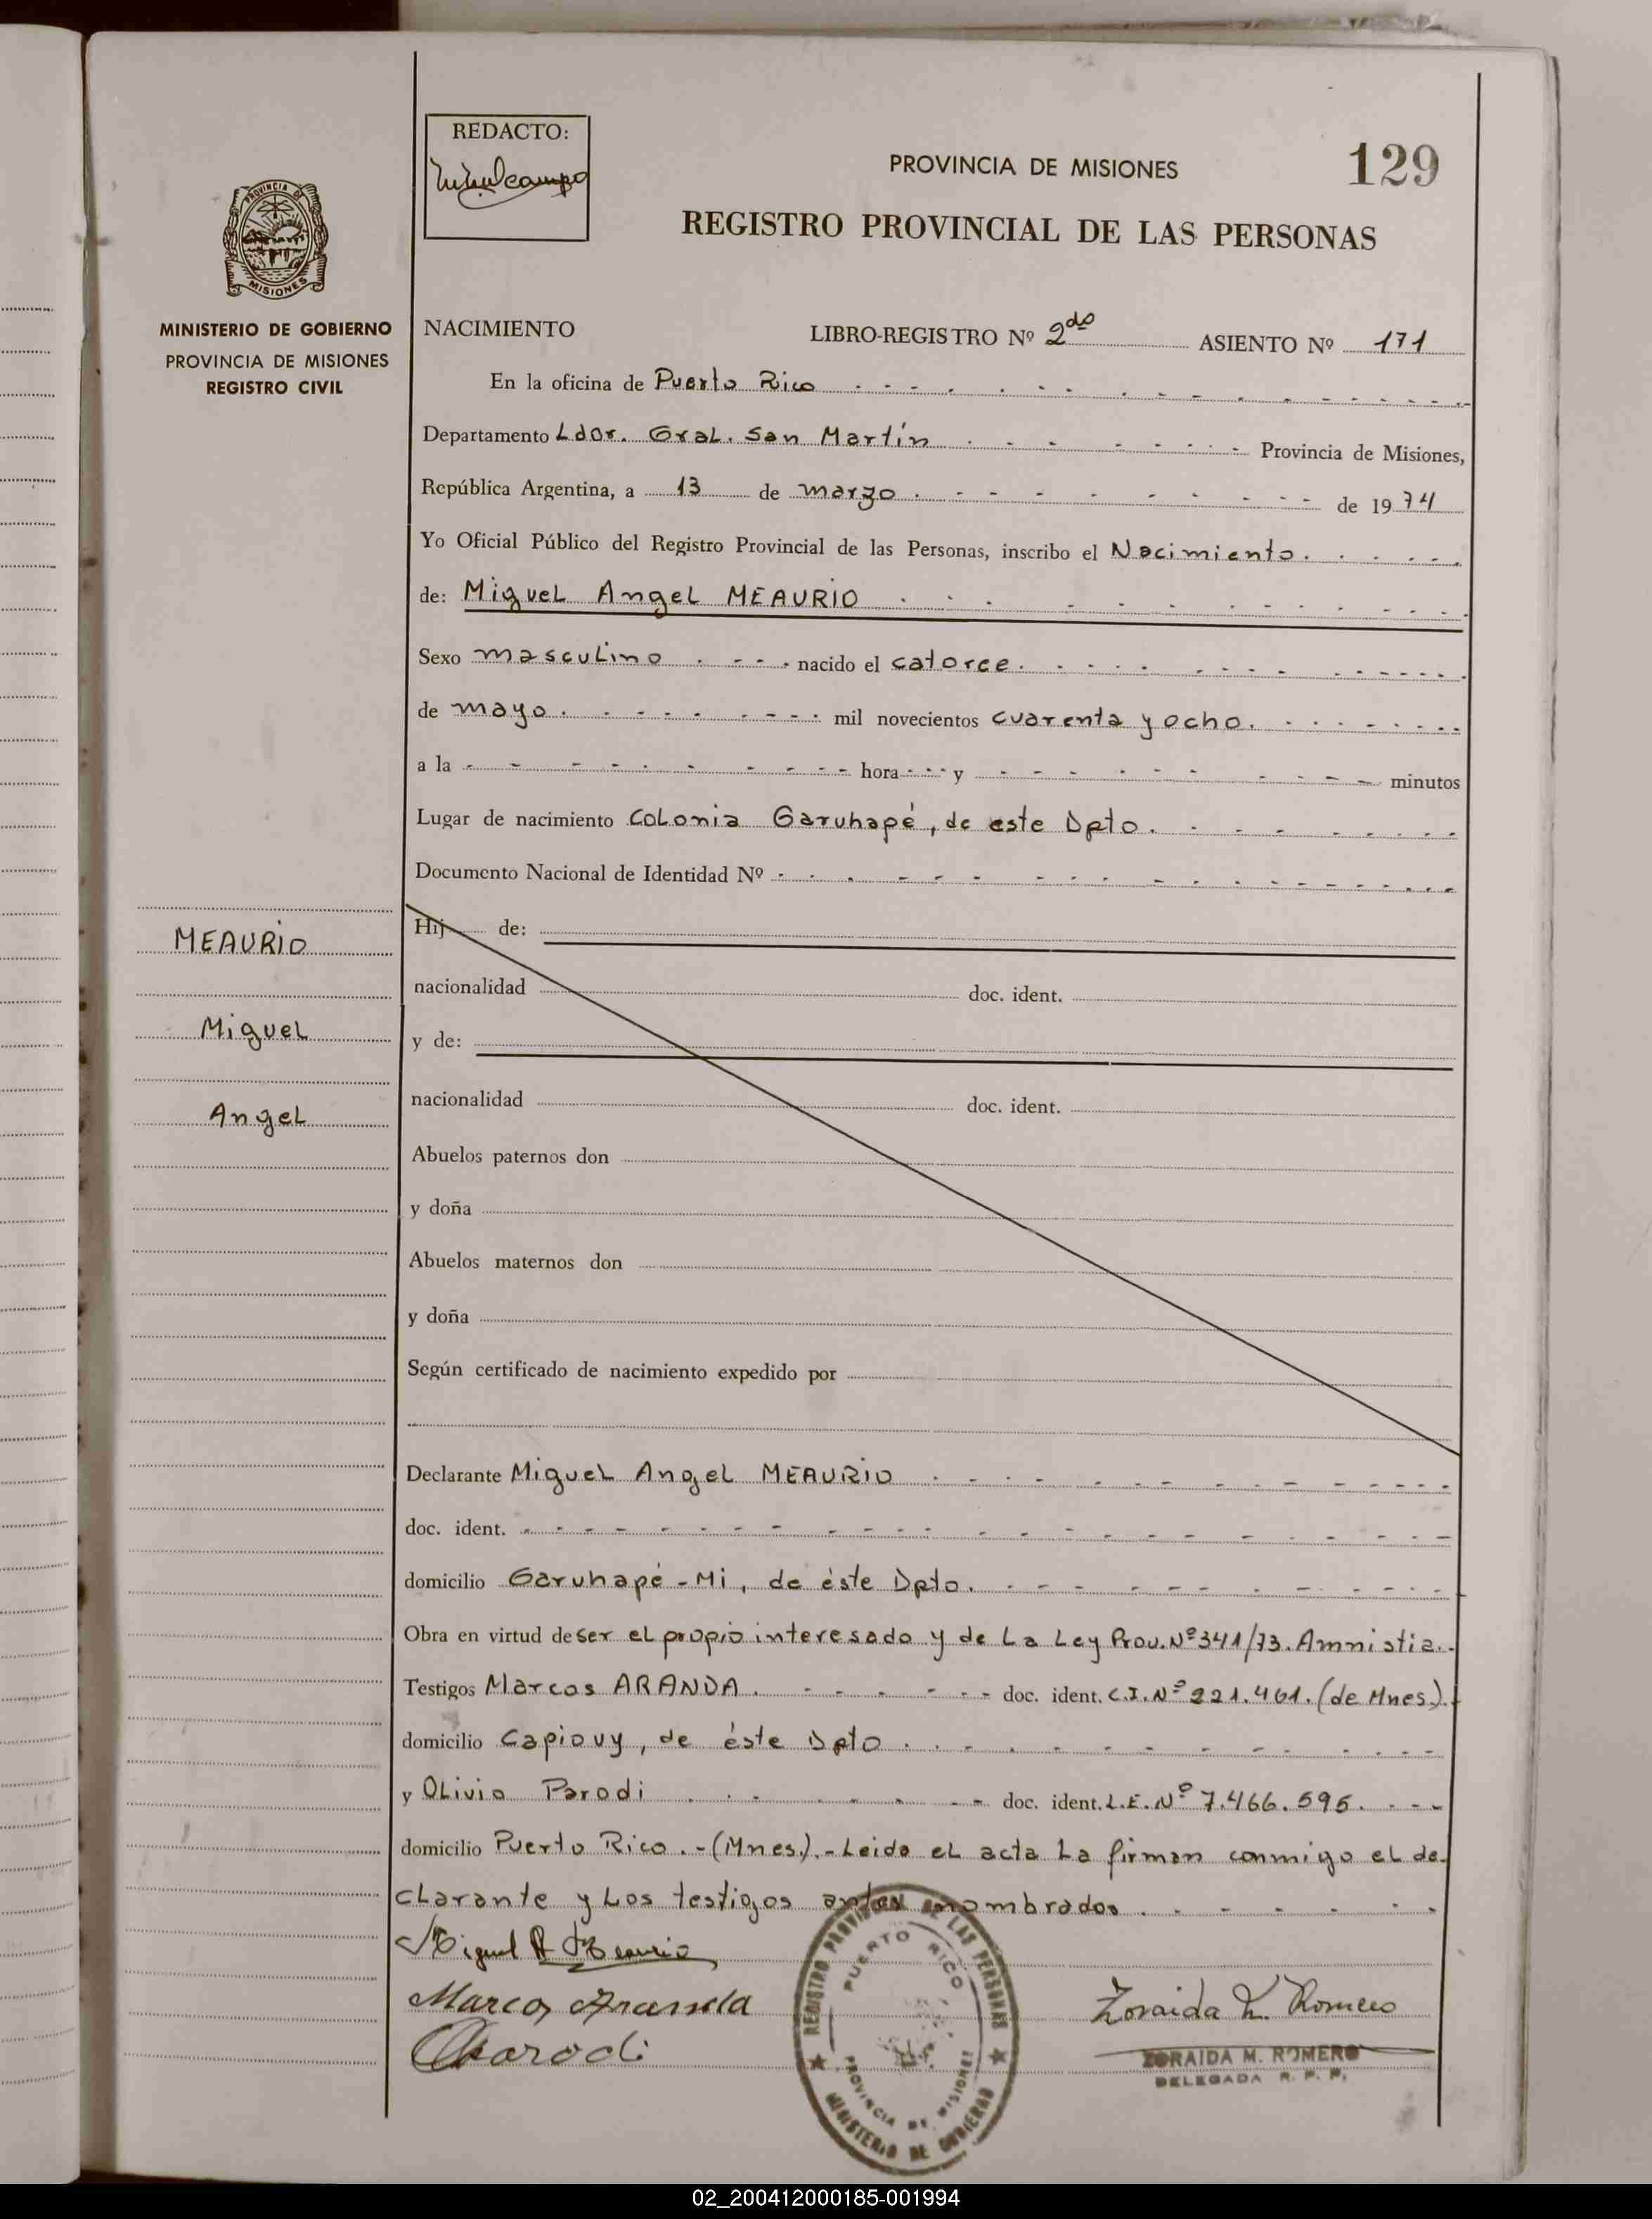 REDACTO:
PROVINCIA DE MISIONES
129
REGISTRO PROVINCIAL DE LAS PERSONAS
PROVINCIA DE
MISIONES
MINISTERIO DE GOBIERNO
PROVINCIA DE MISIONES
REGISTRO CIVIL
NACIMIENTO LIBRO-REGISTRO Nº 2do ASIENTO Nº 171
En la oficina de Puerto Rico
Departamento Ldor. Gral. San Martín Provincia de Misiones,
República Argentina, a 13 de marzo de 1974
Yo Oficial Público del Registro Provincial de las Personas, inscribo el Nacimiento.
de: Miguel Angel MEAURIO
Sexo masculino nacido el catorce.
de mayo. mil novecientos cuarenta y ocho.
a la hora y minutos
Lugar de nacimiento Colonia Garuhapé, de este Dpto.
Documento Nacional de Identidad Nº
Hij de:
MEAURIO
nacionalidad doc. ident.
Miguel
y de:
nacionalidad doc. ident.
Angel
Abuelos paternos don
y doña
Abuelos maternos don
y doña
Según certificado de nacimiento expedido por
Declarante Miguel Angel MEAURIO
doc. ident.
domicilio Garuhapé-Mi, de éste Dpto.
Obra en virtud de ser el propio interesado y de la Ley Prov. Nº 341/73. Amnistia.
Testigos Marcos ARANDA. doc. ident. C.I. Nº 221.461. (de Mnes).
domicilio Capiovy, de éste Dpto.
y Olivio Parodi doc. ident. L.E. Nº 7.466.595.
domicilio Puerto Rico.-(Mnes).-Leida el acta la firman conmigo el de-
clarante y los testigos antes nombrados.
Miguel A Meaurio
Marcos Aranda
Zoraida M. Romero
OParodi
ZORAIDA M. ROMERO
DELEGADA R. P. P.
REGISTRO PROVINCIAL DE LAS PERSONAS
PUERTO RICO
PROVINCIA DE MISIONES
MINISTERIO DE GOBIERNO
02_200412000185-001994